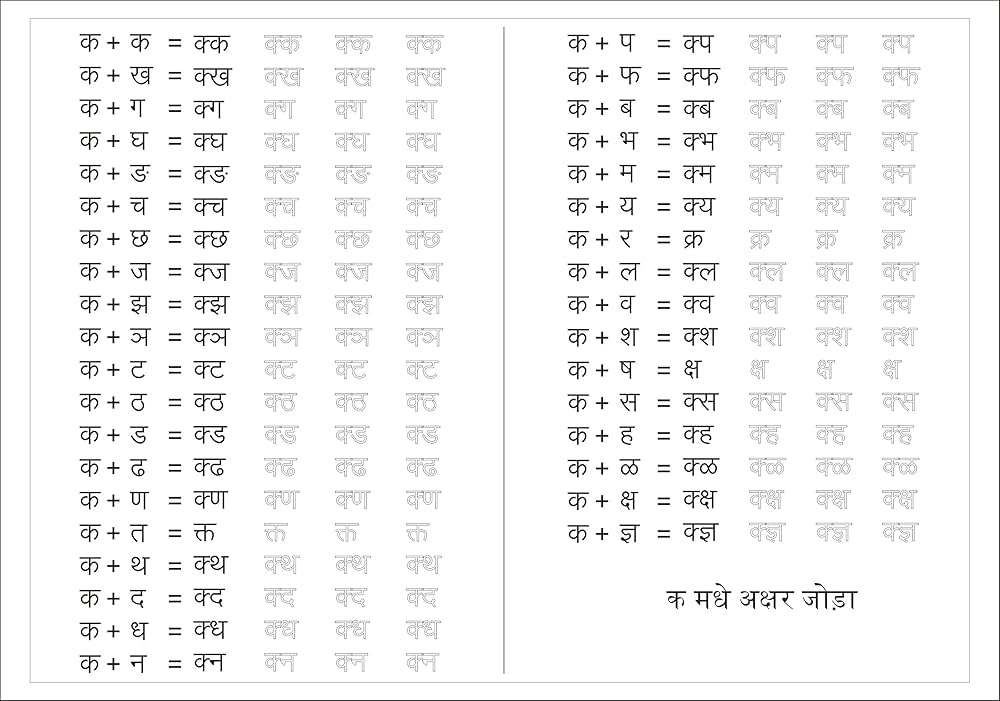 क + क = क्क क्क क्क क्क
क + ख = क्ख क्ख क्ख क्ख
क + ग = क्ग क्ग क्ग क्ग
क + घ = क्घ क्घ क्घ क्घ
क + ङ = क्ङ क्ङ क्ङ क्ङ
क + च = क्च क्च क्च क्च
क + छ = क्छ क्छ क्छ क्छ
क + ज = क्ज क्ज क्ज क्ज
क + झ = क्झ क्झ क्झ क्झ
क + ञ = क्ञ क्ञ क्ञ क्ञ
क + ट = क्ट क्ट क्ट क्ट
क + ठ = क्ठ क्ठ क्ठ क्ठ
क + ड = क्ड क्ड क्ड क्ड
क + ढ = क्ढ क्ढ क्ढ क्ढ
क + ण = क्ण क्ण क्ण क्ण
क + त = क्त क्त क्त क्त
क + थ = क्थ क्थ क्थ क्थ
क + द = क्द क्द क्द क्द
क + ध = क्ध क्ध क्ध क्ध
क + न = क्न क्न क्न क्न
क + प = क्प क्प क्प क्प
क + फ = क्फ क्फ क्फ क्फ
क + ब = क्ब क्ब क्ब क्ब
क + भ = क्भ क्भ क्भ क्भ
क + म = क्म क्म क्म क्म
क + य = क्य क्य क्य क्य
क + र = क्र क्र क्र क्र
क + ल = क्ल क्ल क्ल क्ल
क + व = क्व क्व क्व क्व
क + श = क्श क्श क्श क्श
क + ष = क्ष क्ष क्ष क्ष
क + स = क्स क्स क्स क्स
क + ह = क्ह क्ह क्ह क्ह
क + ळ = क्ळ क्ळ क्ळ क्ळ
क + क्ष = क्क्ष क्क्ष क्क्ष क्क्ष
क + ज्ञ = क्ज्ञ क्ज्ञ क्ज्ञ क्ज्ञ
क मधे अक्षर जोड़ा